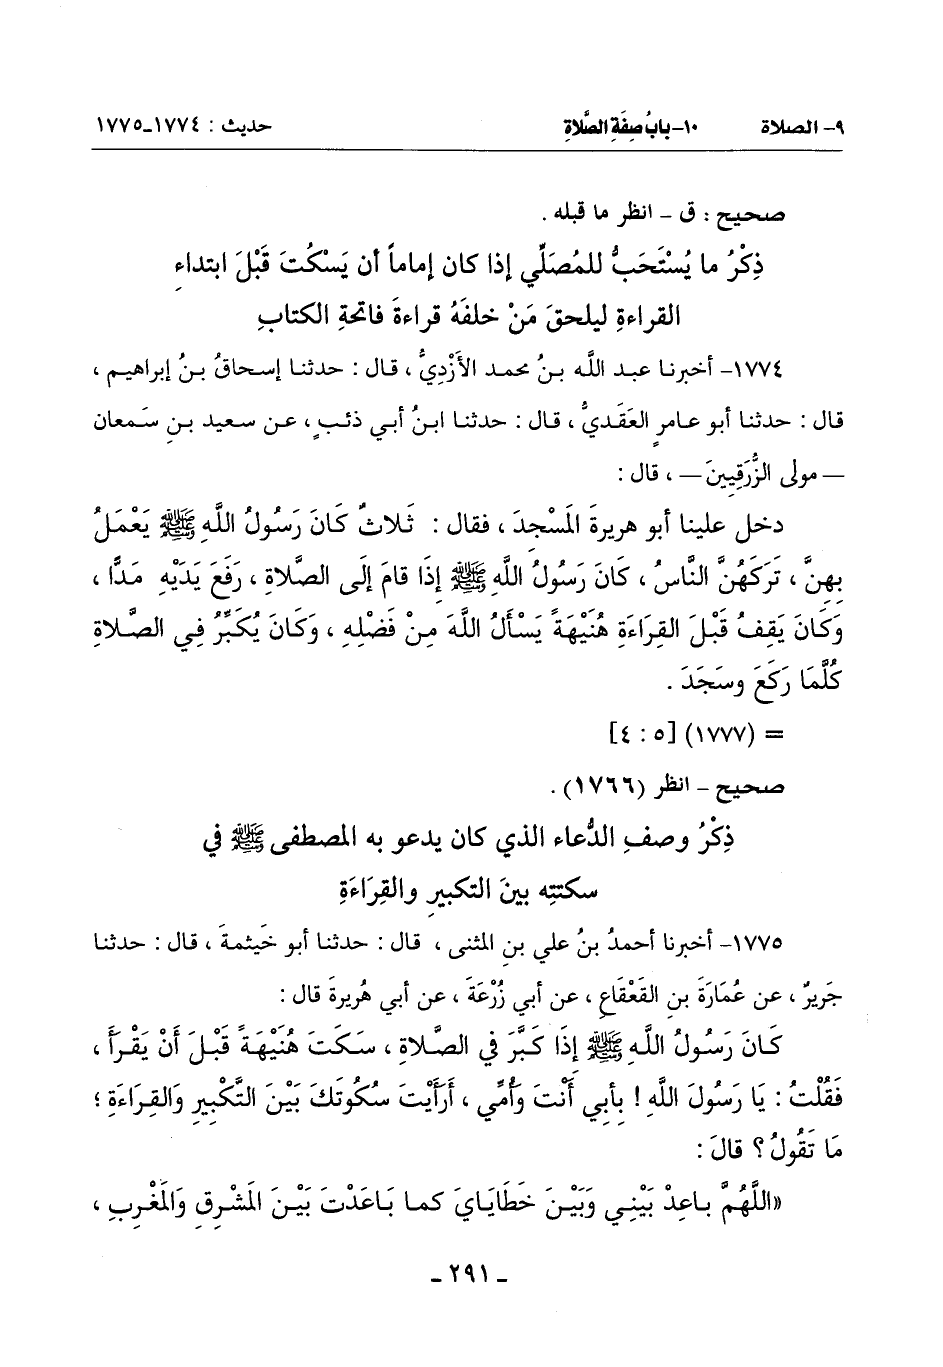 ٩- الصلاة ١٠-بابُ صِفَةِ الصَّلاةِ حديث : ١٧٧٤-١٧٧٥
صحيح : ق - انظر ما قبله .
ذِكْرُ ما يُسْتَحَبُّ للمُصَلِّي إذا كان إماماً أن يَسْكُتَ قَبْلَ ابتداءِ
القراءةِ ليلحقَ مَنْ خلفَهُ قراءةَ فاتحةِ الكتابِ
١٧٧٤- أخبرنا عبد الله بنُ محمد الأَزْديُّ ، قال : حدثنا إسحاقُ بنُ إبراهيم ،
قال : حدثنا أبو عامرٍ العَقَديُّ ، قال : حدثنا ابنُ أبي ذئبٍ ، عن سعيد بنِ سَمعان
— مولى الزُّرَقِيينَ — ، قال :
دخل علينا أبو هريرةَ المَسْجِدَ ، فقال : ثَلاثٌ كَانَ رَسُولُ اللَّهِ ﷺ يَعْمَلُ
بِهِنَّ ، تَرَكَهُنَّ النَّاسُ ، كَانَ رَسُولُ اللَّهِ ﷺ إِذَا قامَ إِلَى الصَّلاةِ ، رَفَعَ يَدَيْهِ مَدًّا ،
وَكَانَ يَقِفُ قَبْلَ القِرَاءَةِ هُنَيْهَةً يَسْأَلُ اللَّهَ مِنْ فَضْلِهِ ، وَكَانَ يُكَبِّرُ فِي الصَّلاةِ
كُلَّمَا رَكَعَ وسَجَدَ .
= (١٧٧٧) [٥ : ٤]
صحيح - انظر (١٧٦٦) .
ذِكْرُ وصفِ الدُّعاء الذي كان يدعو به المصطفى ﷺ في
سكتتِه بينَ التكبيرِ والقِرَاءَةِ
١٧٧٥- أخبرنا أحمدُ بنُ علي بنِ المثنى ، قال : حدثنا أبو خَيثمةَ ، قال : حدثنا
جَريرٌ ، عن عُمَارَةَ بنِ القَعْقَاعِ ، عن أبي زُرْعَةَ ، عن أبي هُريرةَ قال :
كَانَ رَسُولُ اللَّهِ ﷺ إِذَا كَبَّرَ في الصَّلاةِ ، سَكَتَ هُنَيْهَةً قَبْلَ أَنْ يَقْرَأَ ،
فَقُلْتُ : يَا رَسُولَ اللَّهِ ! بِأَبِي أَنْتَ وَأُمِّي ، أَرَأَيْتَ سُكُوتَكَ بَيْنَ التَّكْبِيرِ وَالقِرَاءَةِ ؛
مَا تَقُولُ ؟ قالَ :
«اللَّهُمَّ باعِدْ بَيْنِي وَبَيْنَ خَطَايَايَ كما بَاعَدْتَ بَيْنَ المَشْرِقِ وَالمَغْرِبِ ،
- ٢٩١ -